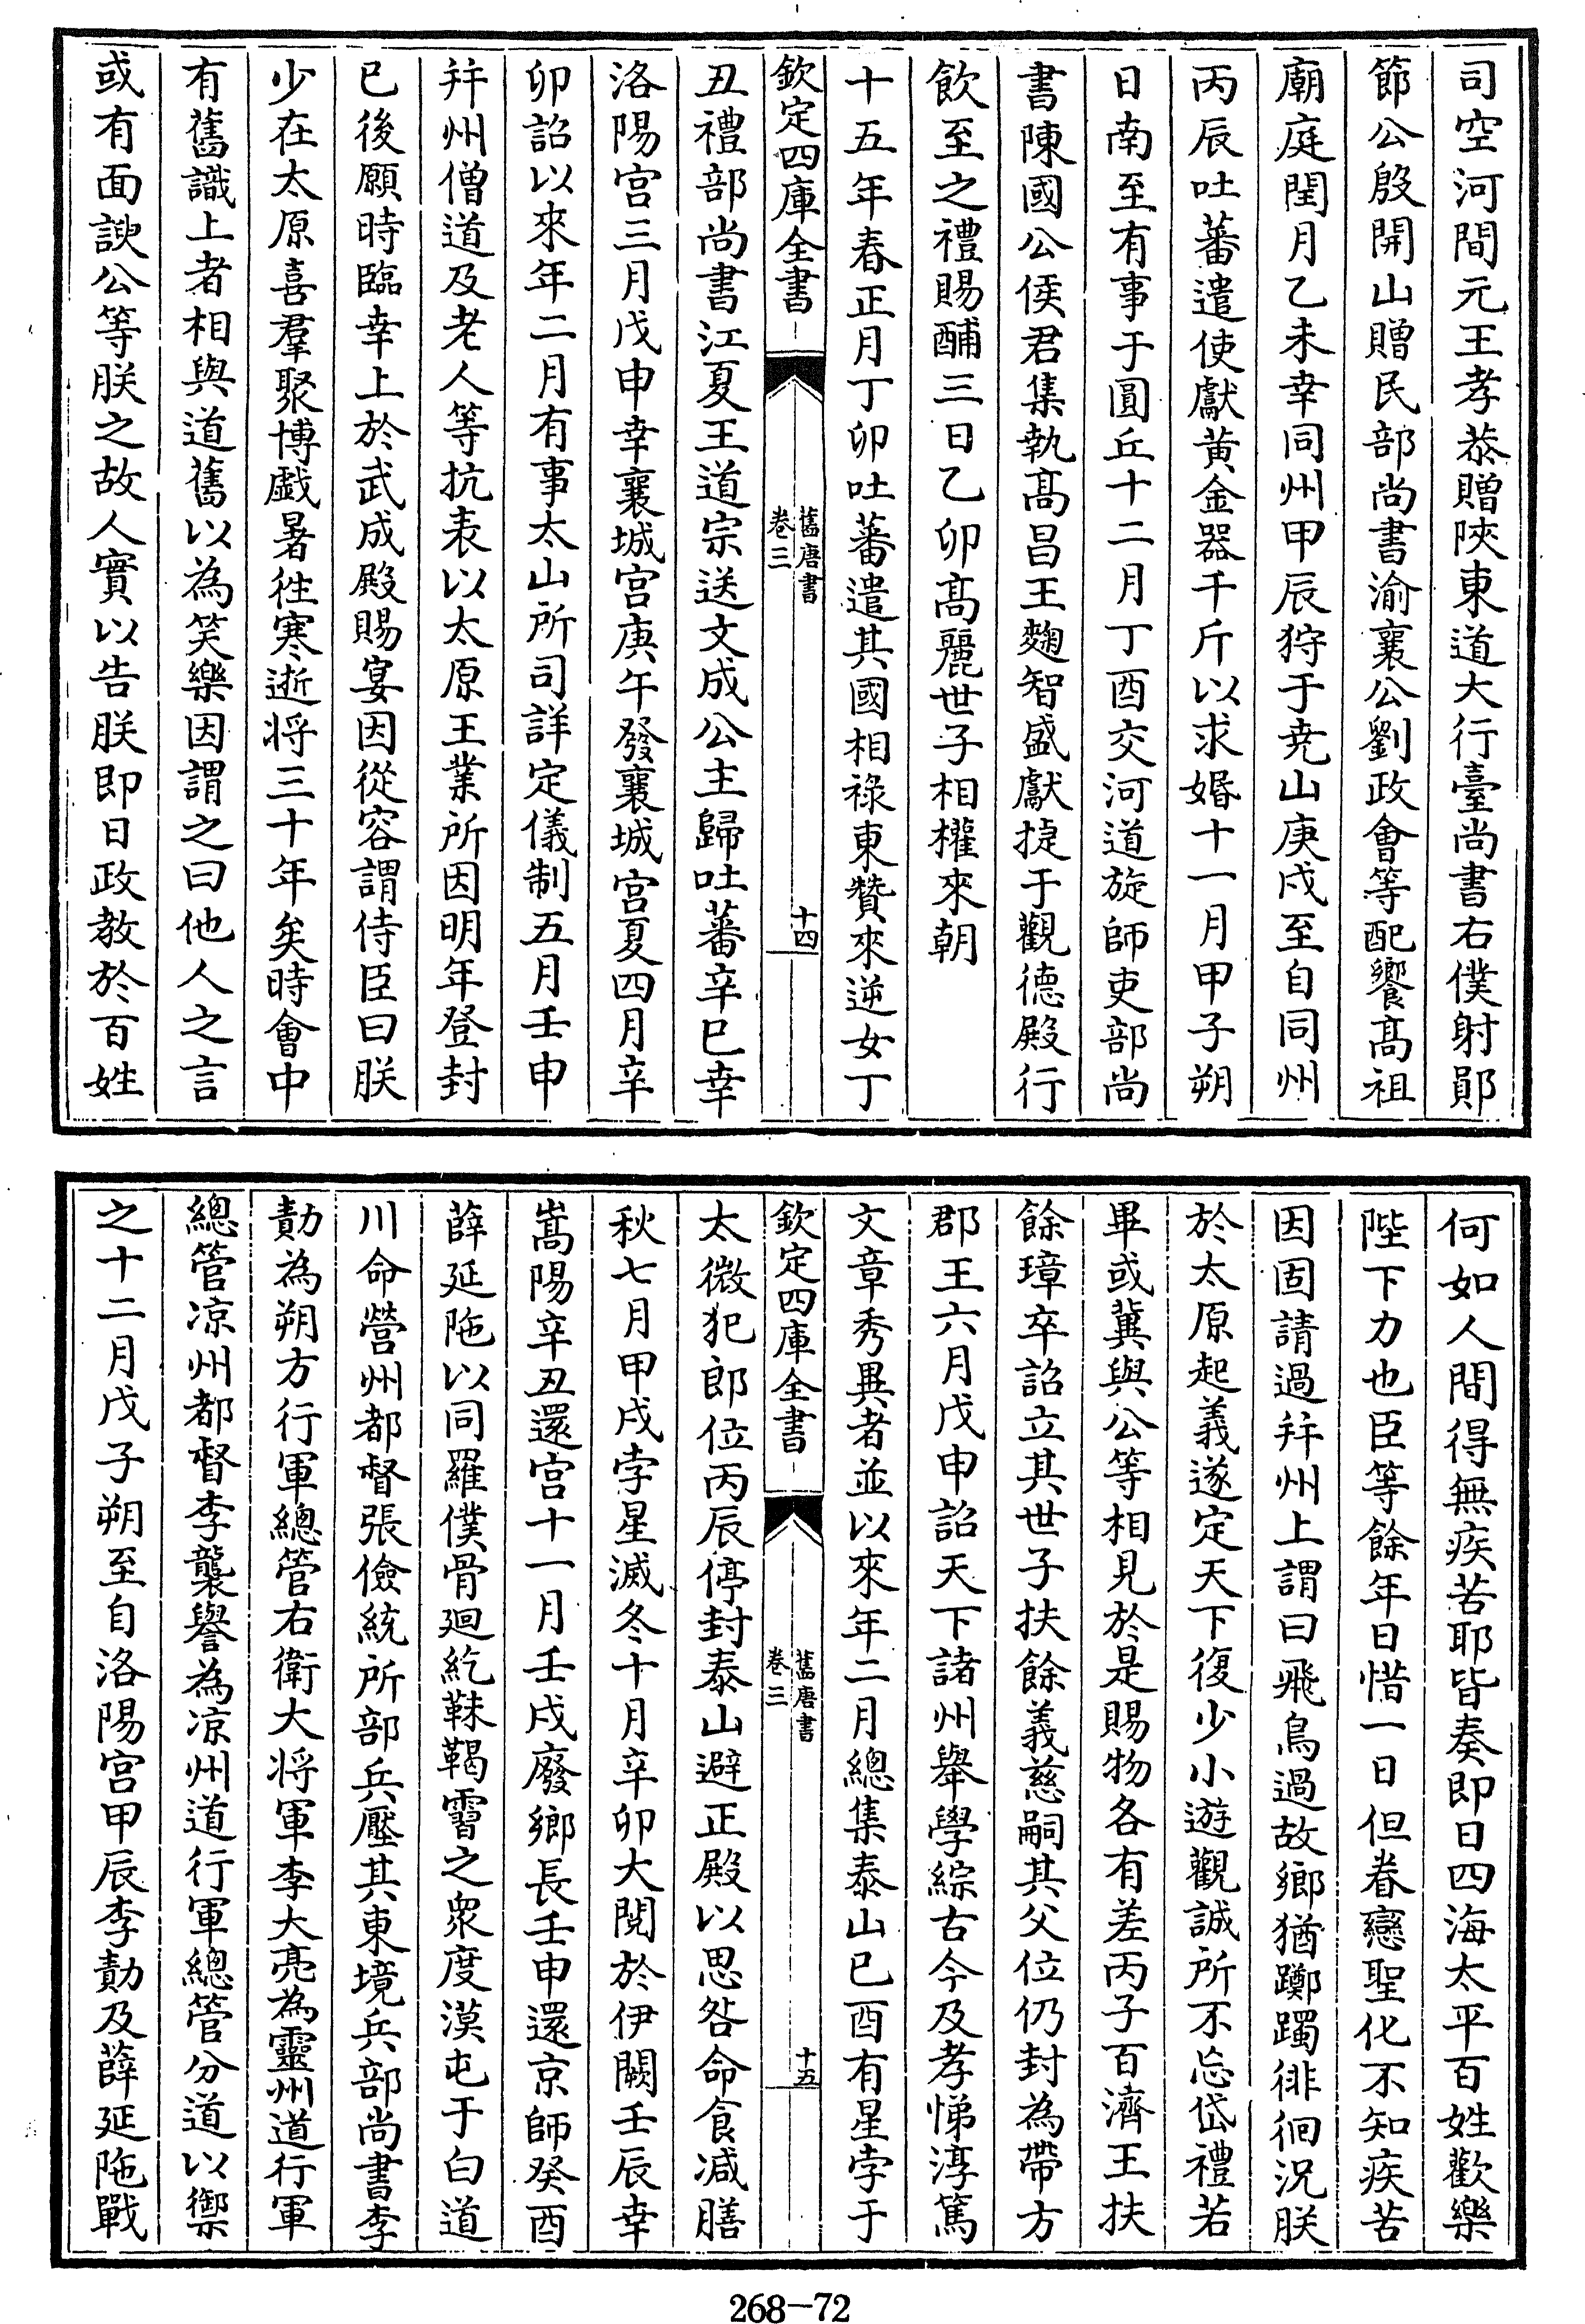 司空河間元王孝恭贈陜東道大行臺尚書右僕射鄖
節公殷開山贈民部尚書渝襄公劉政會等配饗髙祖
廟庭閏月乙未幸同州甲辰狩于尭山庚戌至自同州
丙辰吐蕃遣使獻黄金器千斤以求婚十一月甲子朔
日南至有事于圓丘十二月丁酉交河道旋師吏部尚
書陳國公侯君集執髙昌王麴智盛獻捷于觀德殿行
飲至之禮賜酺三日乙卯髙麗世子相權來朝
十五年春正月丁卯吐蕃遣其國相祿東贊來逆女丁
欽定四庫全書
舊唐書
卷三
十四
丑禮部尚書江夏王道宗送文成公主歸吐蕃辛巳幸
洛陽宫三月戊申幸襄城宫庚午發襄城宫夏四月辛
卯詔以來年二月有事太山所司詳定儀制五月壬申
并州僧道及老人等抗表以太原王業所因明年登封
已後願時臨幸上於武成殿賜宴因從容謂侍臣曰朕
少在太原喜羣聚博戯暑徃寒逝将三十年矣時會中
有舊識上者相與道舊以為笑樂因謂之曰他人之言
或有面諛公等朕之故人實以告朕即日政教於百姓
何如人間得無疾苦耶皆奏即日四海太平百姓歡樂
陛下力也臣等餘年日惜一日但眷戀聖化不知疾苦
因固請過并州上謂曰飛鳥過故鄉猶躑躅徘徊況朕
於太原起義遂定天下復少小遊觀誠所不忘岱禮若
畢或冀與公等相見於是賜物各有差丙子百濟王扶
餘璋卒詔立其世子扶餘義慈嗣其父位仍封為帶方
郡王六月戊申詔天下諸州舉學綜古今及孝悌淳篤
文章秀異者並以來年二月總集泰山已酉有星孛于
欽定四庫全書
舊唐書
卷三
十五
太微犯郎位丙辰停封泰山避正殿以思咎命食减膳
秋七月甲戌孛星滅冬十月辛卯大閱於伊闕壬辰幸
嵩陽辛丑還宫十一月壬戌廢鄉長壬申還京師癸酉
薛延陁以同羅僕骨廻紇靺鞨霫之衆度漠屯于白道
川命營州都督張儉統所部兵壓其東境兵部尚書李
勣為朔方行軍總管右衛大将軍李大亮為靈州道行軍
總管凉州都督李襲譽為凉州道行軍總管分道以禦
之十二月戊子朔至自洛陽宫甲辰李勣及薛延陁戰
268—72